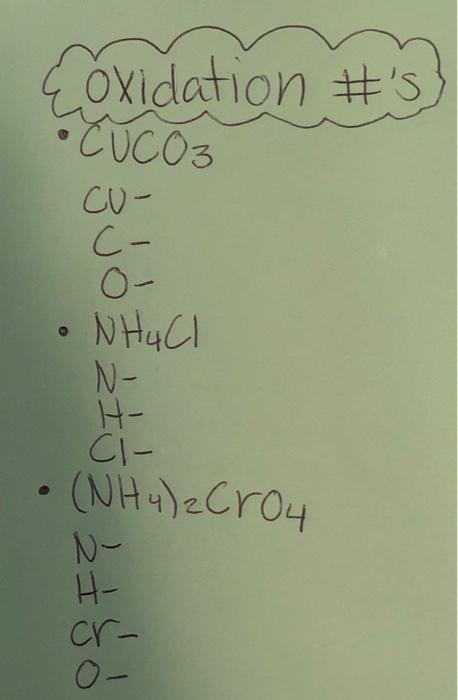 oxidation #'s
• CUCO3
CU-
C-
O-
• NH4Cl
N-
H-
Cl-
• (NH4)2CrO4
N-
H-
Cr-
O-